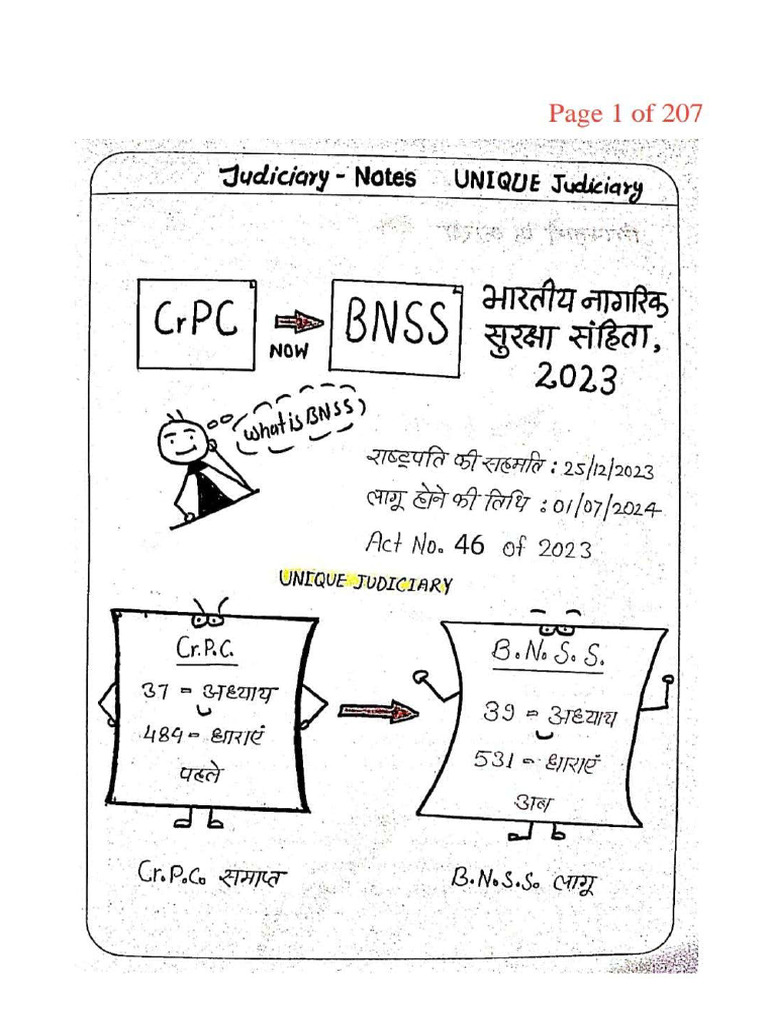 Page 1 of 207
Judiciary - Notes UNIQUE Judiciary
CrPC
NOW
BNSS
भारतीय नागरिक
सुरक्षा संहिता,
2023
What is BNSS
राष्ट्रपति की सहमति : 25/12/2023
लागू होने की तिथि : 01/07/2024
Act No. 46 of 2023
UNIQUE JUDICIARY
Cr.P.C.
37 - अध्याय
484 - धाराएं
पहले
B.N.S.S.
39 - अध्याय
531 - धाराएं
अब
Cr.P.C. समाप्त
B.N.S.S. लागू